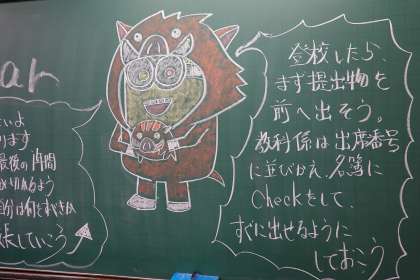 ar
いよ
ります
最後の1週間
切れるよう
張していこう
登校したら、
まず提出物を
前へ出そう。
教科係は出席番号
に並びかえ、名簿に
Checkをして、
すぐに出せるように
しておこう